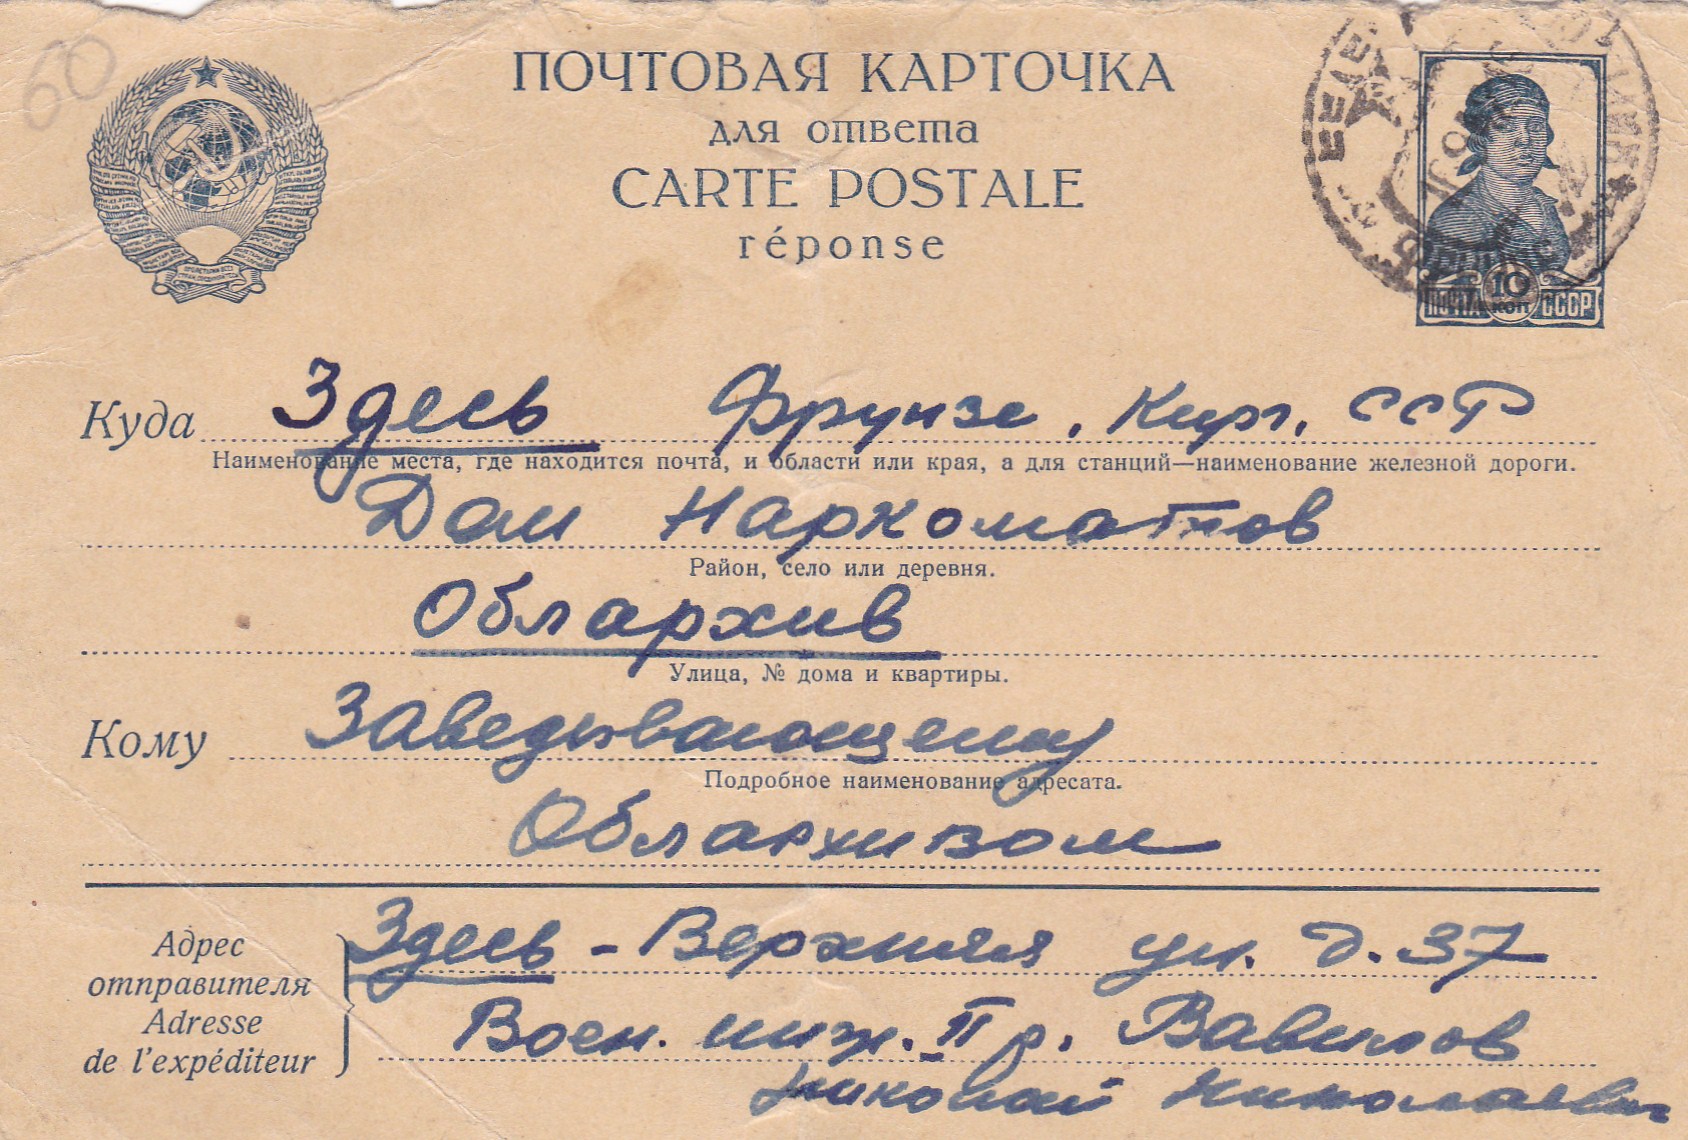 60
ПОЧТОВАЯ КАРТОЧКА
для ответа
CARTE POSTALE
réponse
ПОЧТА 10 КОП СССР
Куда Здесь Фрунзе, Кирг. ССР
Наименование места, где находится почта, и области или края, а для станций—наименование железной дороги.
Дом Наркоматов
Район, село или деревня.
Облархив
Улица, № дома и квартиры.
Кому Заведывающему
Подробное наименование адресата.
Облархивом
Адрес отправителя
Adresse de l'expéditeur
Здесь - Верхняя ул. д. 37
Воен. инж. II р. Вавилов
Николай Николаевич